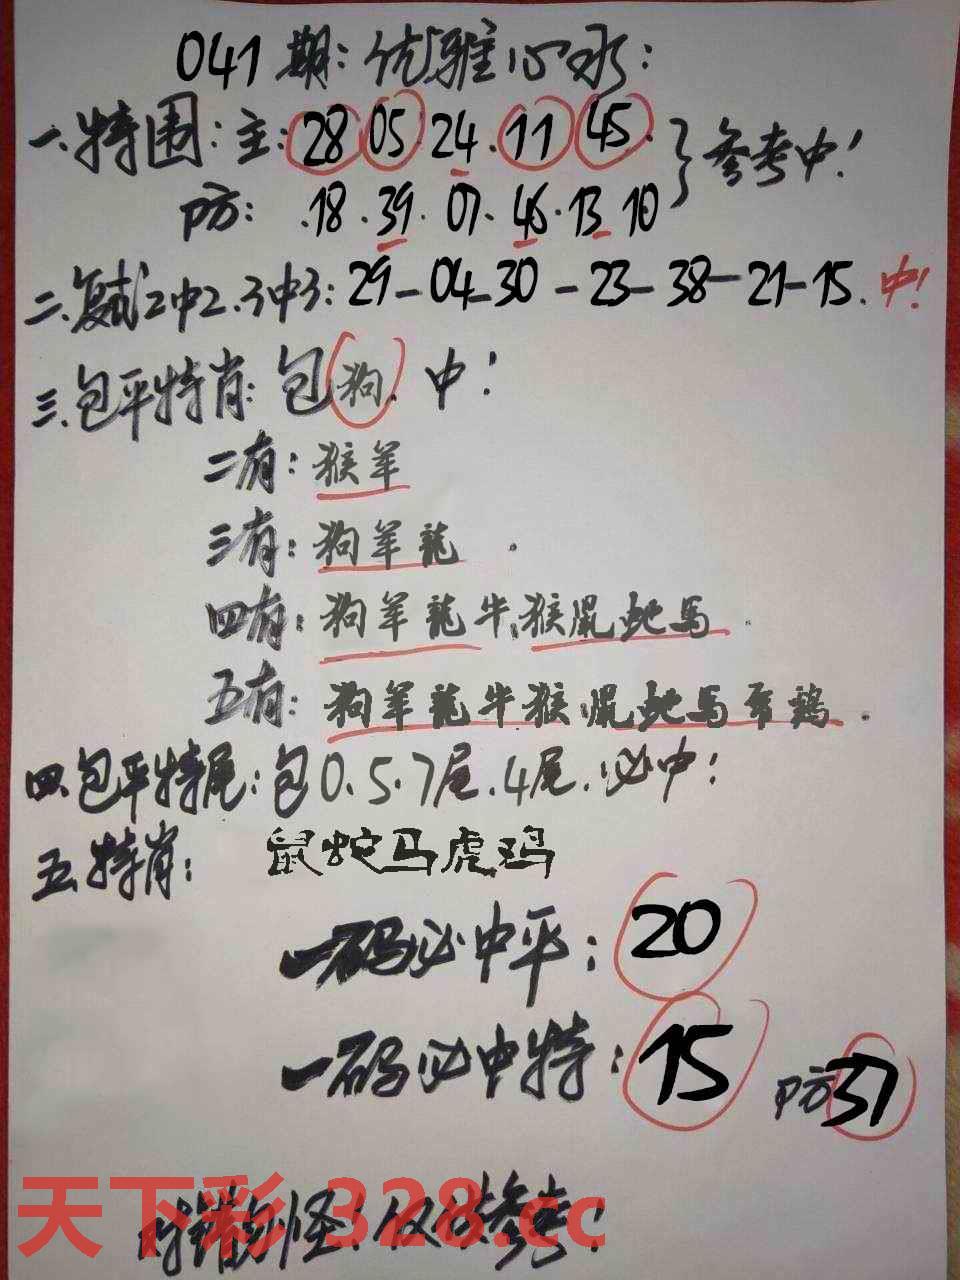 041期:优雅心水:
一.特围:主:28 05 24.11 45.
参考中!
防: .18.39.07.46.13 10
二.复式2中2.3中3:29-04-30-23-38-21-15.中!
三.包平特肖:包狗.中!
二有:猴羊
三有:狗羊龍.
四有:狗羊龍牛猴鼠蛇馬.
五有:狗羊龍牛猴鼠蛇馬虎鷄.
四.包平特尾:包0.5.7尾.4尾.必中!
五.特肖:鼠蛇马虎鸡
一码必中平:20
一码必中特:15 防37
对错勿怪!仅供参考!
天下彩 328.cc